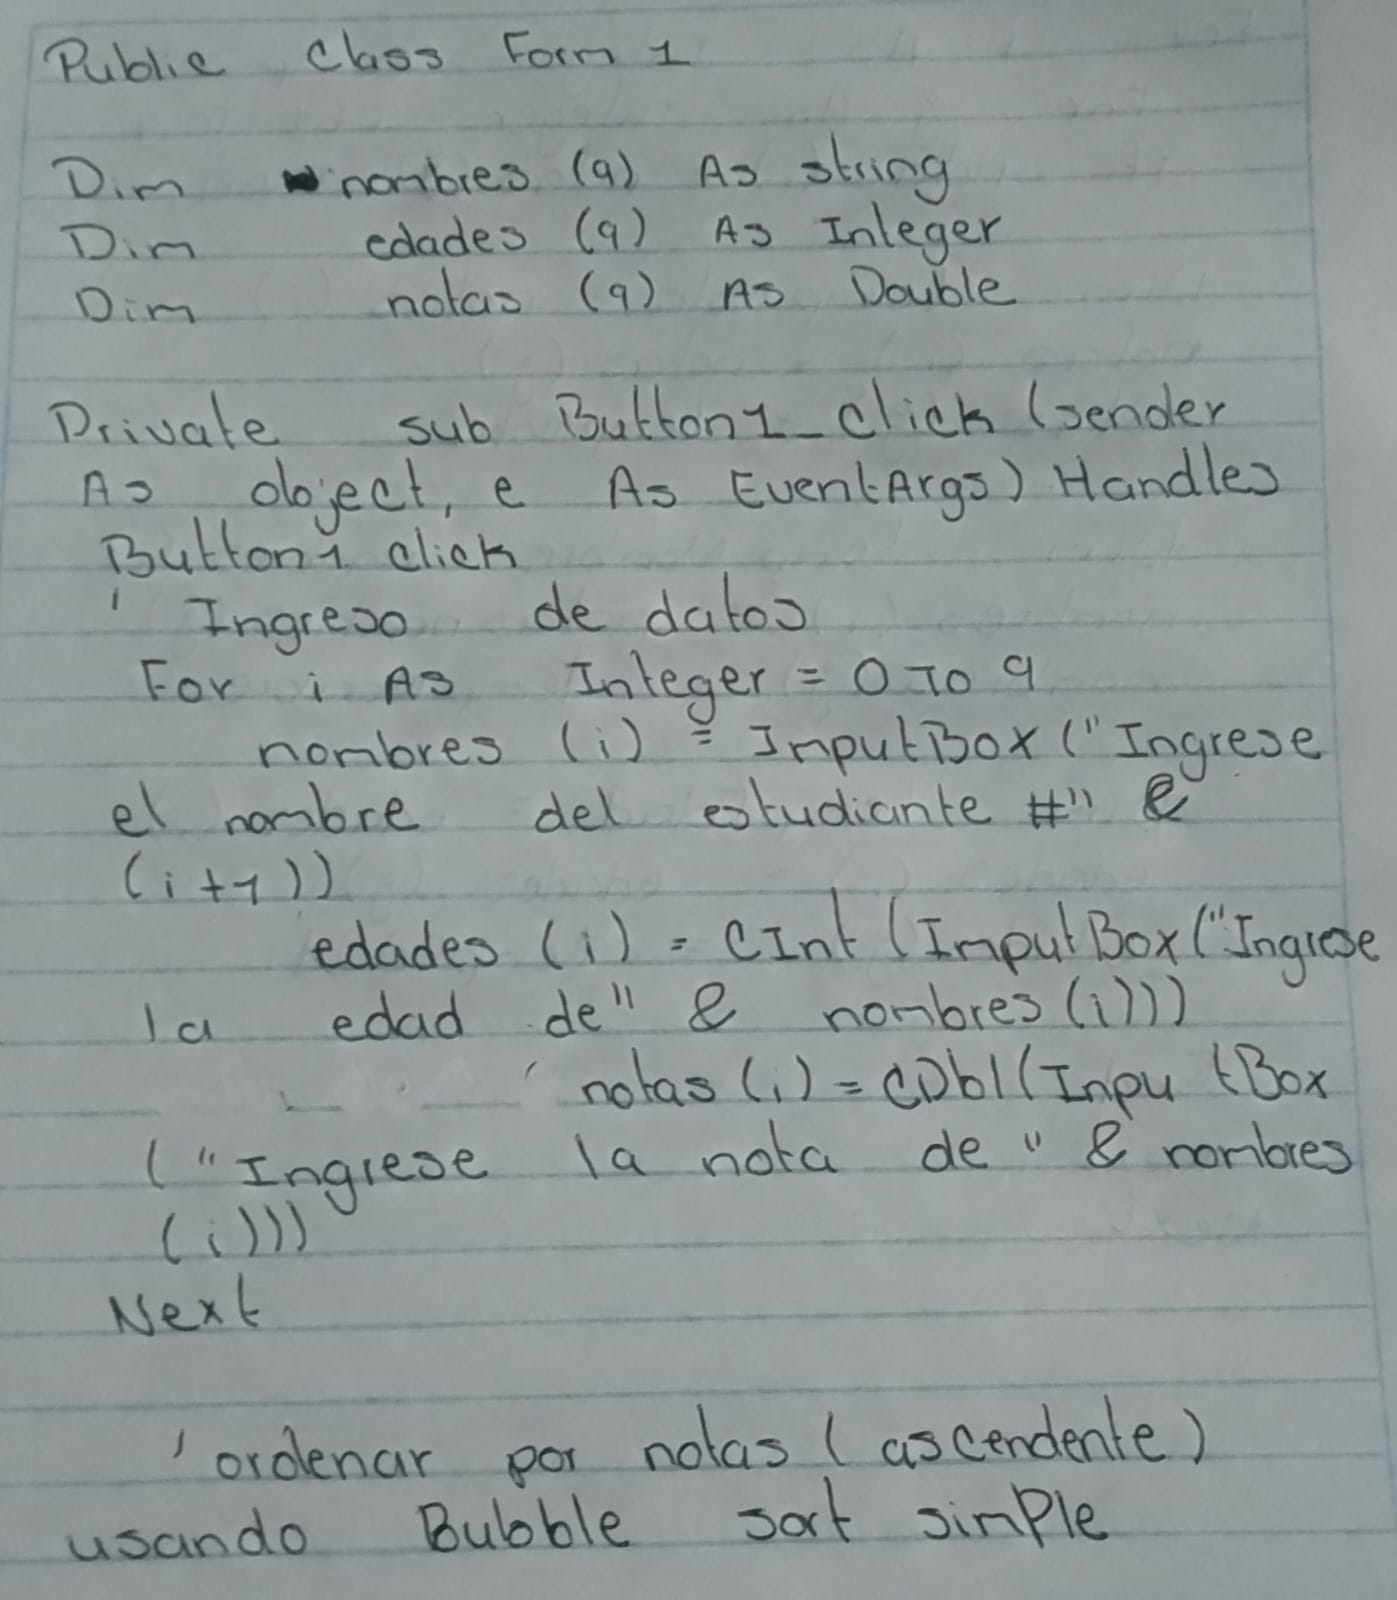 Public Class Form 1
Dim nombres (9) As string
Dim edades (9) As Integer
Dim notas (9) As Double
Private sub Button1_click (sender
As object, e As EventArgs) Handles
Button1 click
' Ingreso de datos
For i As Integer = 0 To 9
nombres (i) = InputBox ("Ingrese
el nombre del estudiante #" &
(i+1))
edades (i) = CInt (InputBox ("Ingrese
la edad de" & nombres (i)))
notas (i) = CDbl (Inpu tBox
("Ingrese la nota de " & nombres
(i)))
Next
' ordenar por notas (ascendente)
usando Bubble sort simple